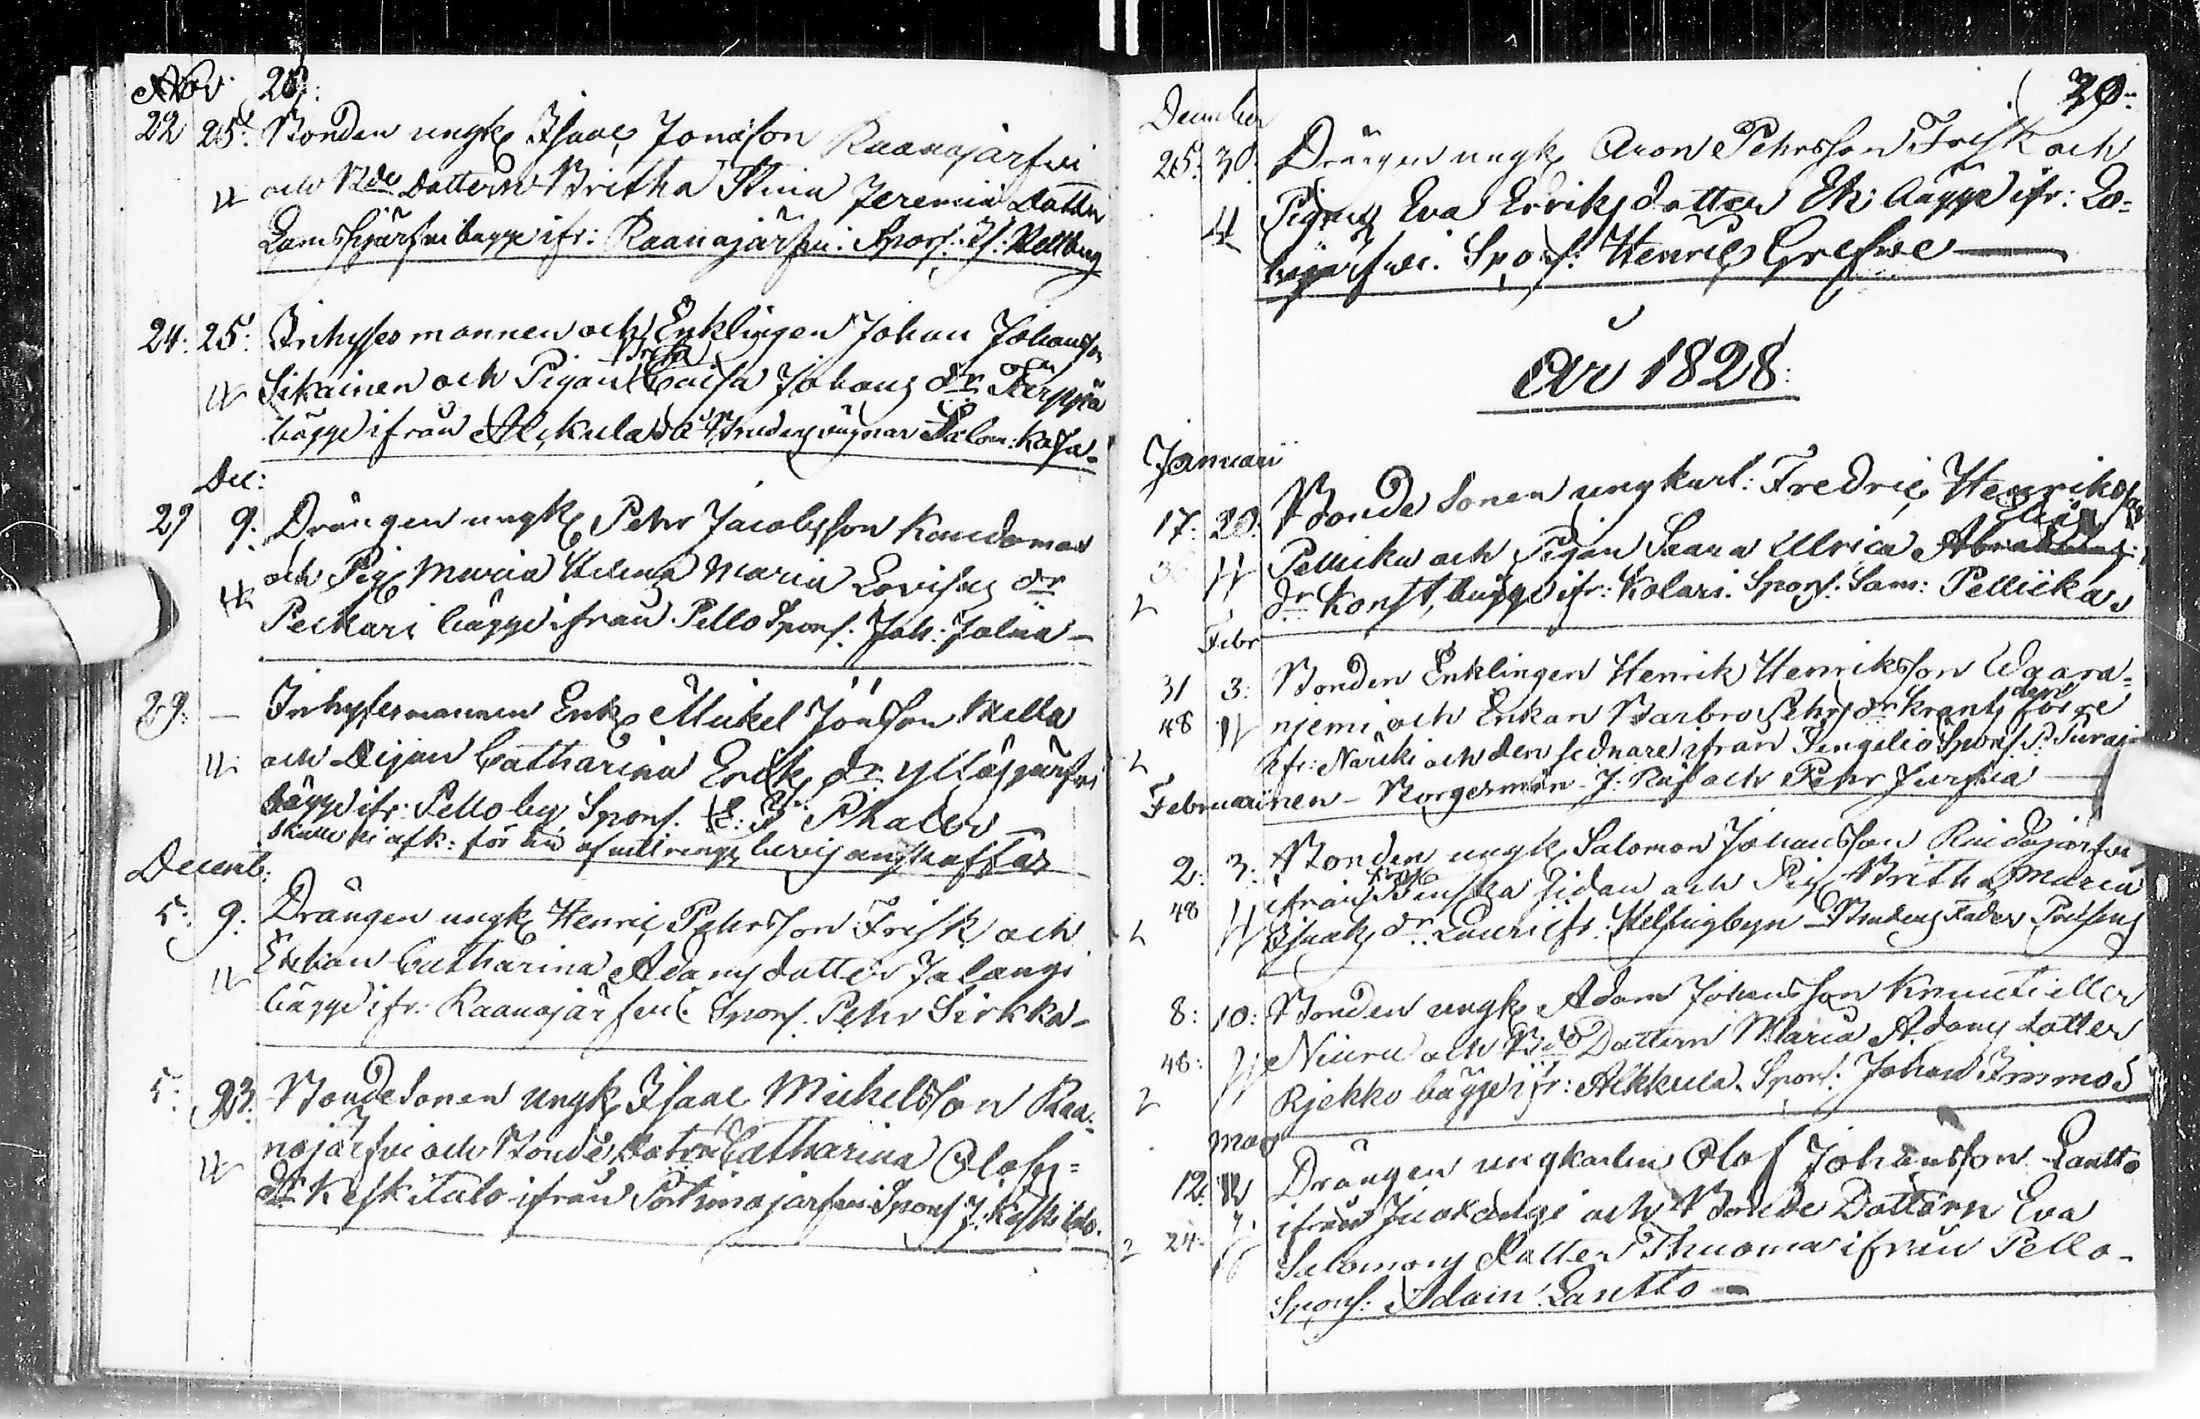 Nov 28:
22 25: Bonden ungk Isaac Jonasson Raanajärfwi
och Bde Dottern Britha Stina Jeremiæ Dotter
bägge ifr: Raanajärfwi. Spons: Is: Rettberg
24: 25: Inhyses mannen och Enklingen Johan Johansson
Brita
Sikainen och Pigan Caisa Johans dr
bägge ifrån Alckula Salom: Kaja-
Dec:
29 9. Drängen ungk Pehr Jacobsson Kaudomaa
och Pig Maria Helena Maria Lovisas dr
Peckari bägge ifrån Pello Spons: Joh: Jolma-
29: — Inhysesmannen Enk Mickel Jönsson Mella
och Pigan Catharina Eriks dr Ylläsjärfwi
bägge ifr: Pello by Spons.
skulle ej afk: för än
Decemb:
5: 9. Drängen ungk Henric Pehrsson Frisk och
Enkan Catharina Adams dotter Jalangi
bägge ifr: Raanajärfwi. Spons. Pehr Sirkka-
5: 23: Bondesonen Ungk Isaac Mickelsson Raa-
najärfwi och Bonde Dotern Catharina Olofs-
dr Keskitalo ifrån Portimojärfwi Spons J. Keskitalo.
39:
December
25: 30: Drängen ungk Aron Pehrsson Frisk och
4 Pigan Eva Eriks dotter Ek: bägge ifr: Lo-
hijärfwi. Spons: Henric Grefwe —
År 1828:
Januarii
17: 20. Bonde Sonen ungkarl: Fredric Henriksson
Pellicka och Pigan Saara Ulrica
2 dr Konst, bägge ifr: Kolari. Spons: Sam: Pellicka
Febr
31 3: Bonden Enklingen Henrik Henriksson Waara-
den
48 njemi och Enkan Barbro Pehrs dr Krants förre
2 ifr: Närcki och den sednare ifrån Jengelio Spons P:
Februarii nen - Borgesmän - J: Raj och Pehr Jurhia —
2: 3: Bonden ungk Salomon Johansson Raidajärfwi
48 ifrån Finska Sidan och Pig Britha Maria
2 Isaaks dr Lauri ifr: Helsingbyn - Brudens Fader
8: 10: Bonden ungk Adam Johansson Knuuti eller
48: Niuru och Bde Dottern Maria Adams dotter
2 Rjekko bägge ifr: Alkkula. Spons: Johan Immos
Mars
12. Drängen ungkarlen Olof Johansson Lantto
ifrån Juoxengi och Bonde Dottern Eva
2 24. Salomons Dotter Thuoma ifrån Pello-
Spons: Adam Lantto -